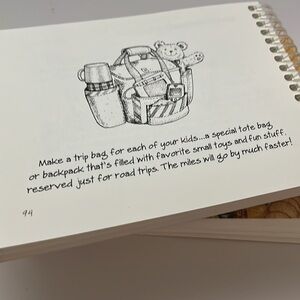 Make a trip bag for each of your kids...a special tote bag
or backpack that's filled with favorite small toys and fun stuff,
reserved just for road trips. The miles will go by much faster!
94